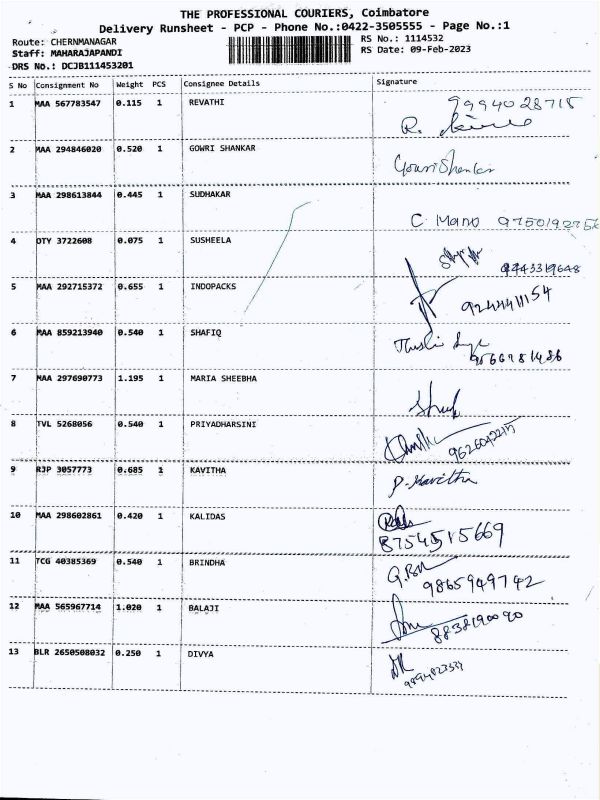 THE PROFESSIONAL COURIERS, Coimbatore
Delivery Runsheet - PCP - Phone No.:0422-3505555 - Page No.:1
Route: CHERNMANAGAR RS No.: 1114532
Staff: MAHARAJAPANDI RS Date: 09-Feb-2023
DRS No.: DCJB111453201
S No Consignment No Weight PCS Consignee Details Signature
1 MAA 567783547 0.115 1 REVATHI 9994028715
R.
2 MAA 294846020 0.520 1 GOWRI SHANKAR Gowri Shankar
3 MAA 298613844 0.445 1 SUDHAKAR
C Mano
4 OTY 3722608 0.075 1 SUSHEELA
9443319648
5 MAA 292715372 0.655 1 INDOPACKS
6 MAA 859213940 0.540 1 SHAFIQ
9566781486
7 MAA 297690773 1.195 1 MARIA SHEEBHA
8 TVL 5268056 0.540 1 PRIYADHARSINI
9 RJP 3057773 0.685 1 KAVITHA P. Kavitha
10 MAA 298602861 0.420 1 KALIDAS
8754515669
11 TCG 40385369 0.540 1 BRINDHA
9865949742
12 MAA 565967714 1.020 1 BALAJI
8838190090
13 BLR 2650508032 0.250 1 DIVYA